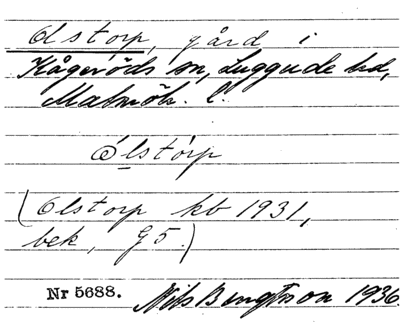 Olstorp, gård i
Kågeröds sn, Luggude hd,
Malmöh. l.
Ólstòrp
(Olstorp kb 1931,
bek, G5.)
Nr 5688. Nils Bengtsson 1936.